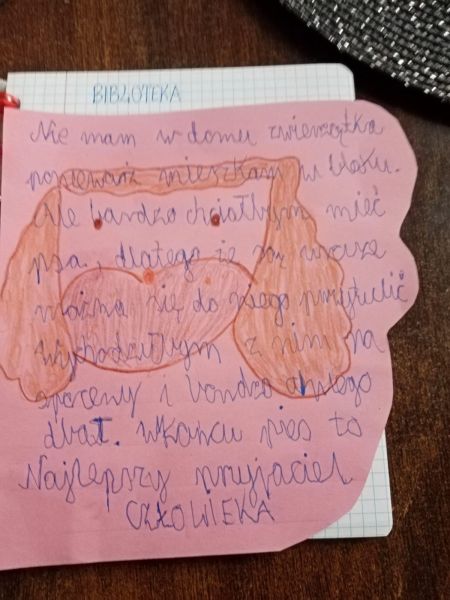 BIBLOTEKA
Nie mam w domu zwierzątka
ponieważ mieszkam w bloku.
Ale bardzo chciałbym mieć
psa, dlatego że są urocze
można się do niego przytulić
Wychodziłbym z nim na
spacery i bardzo o niego
dbał. wkońcu pies to
Najlepszy przyjaciel
CZŁOWIEKA